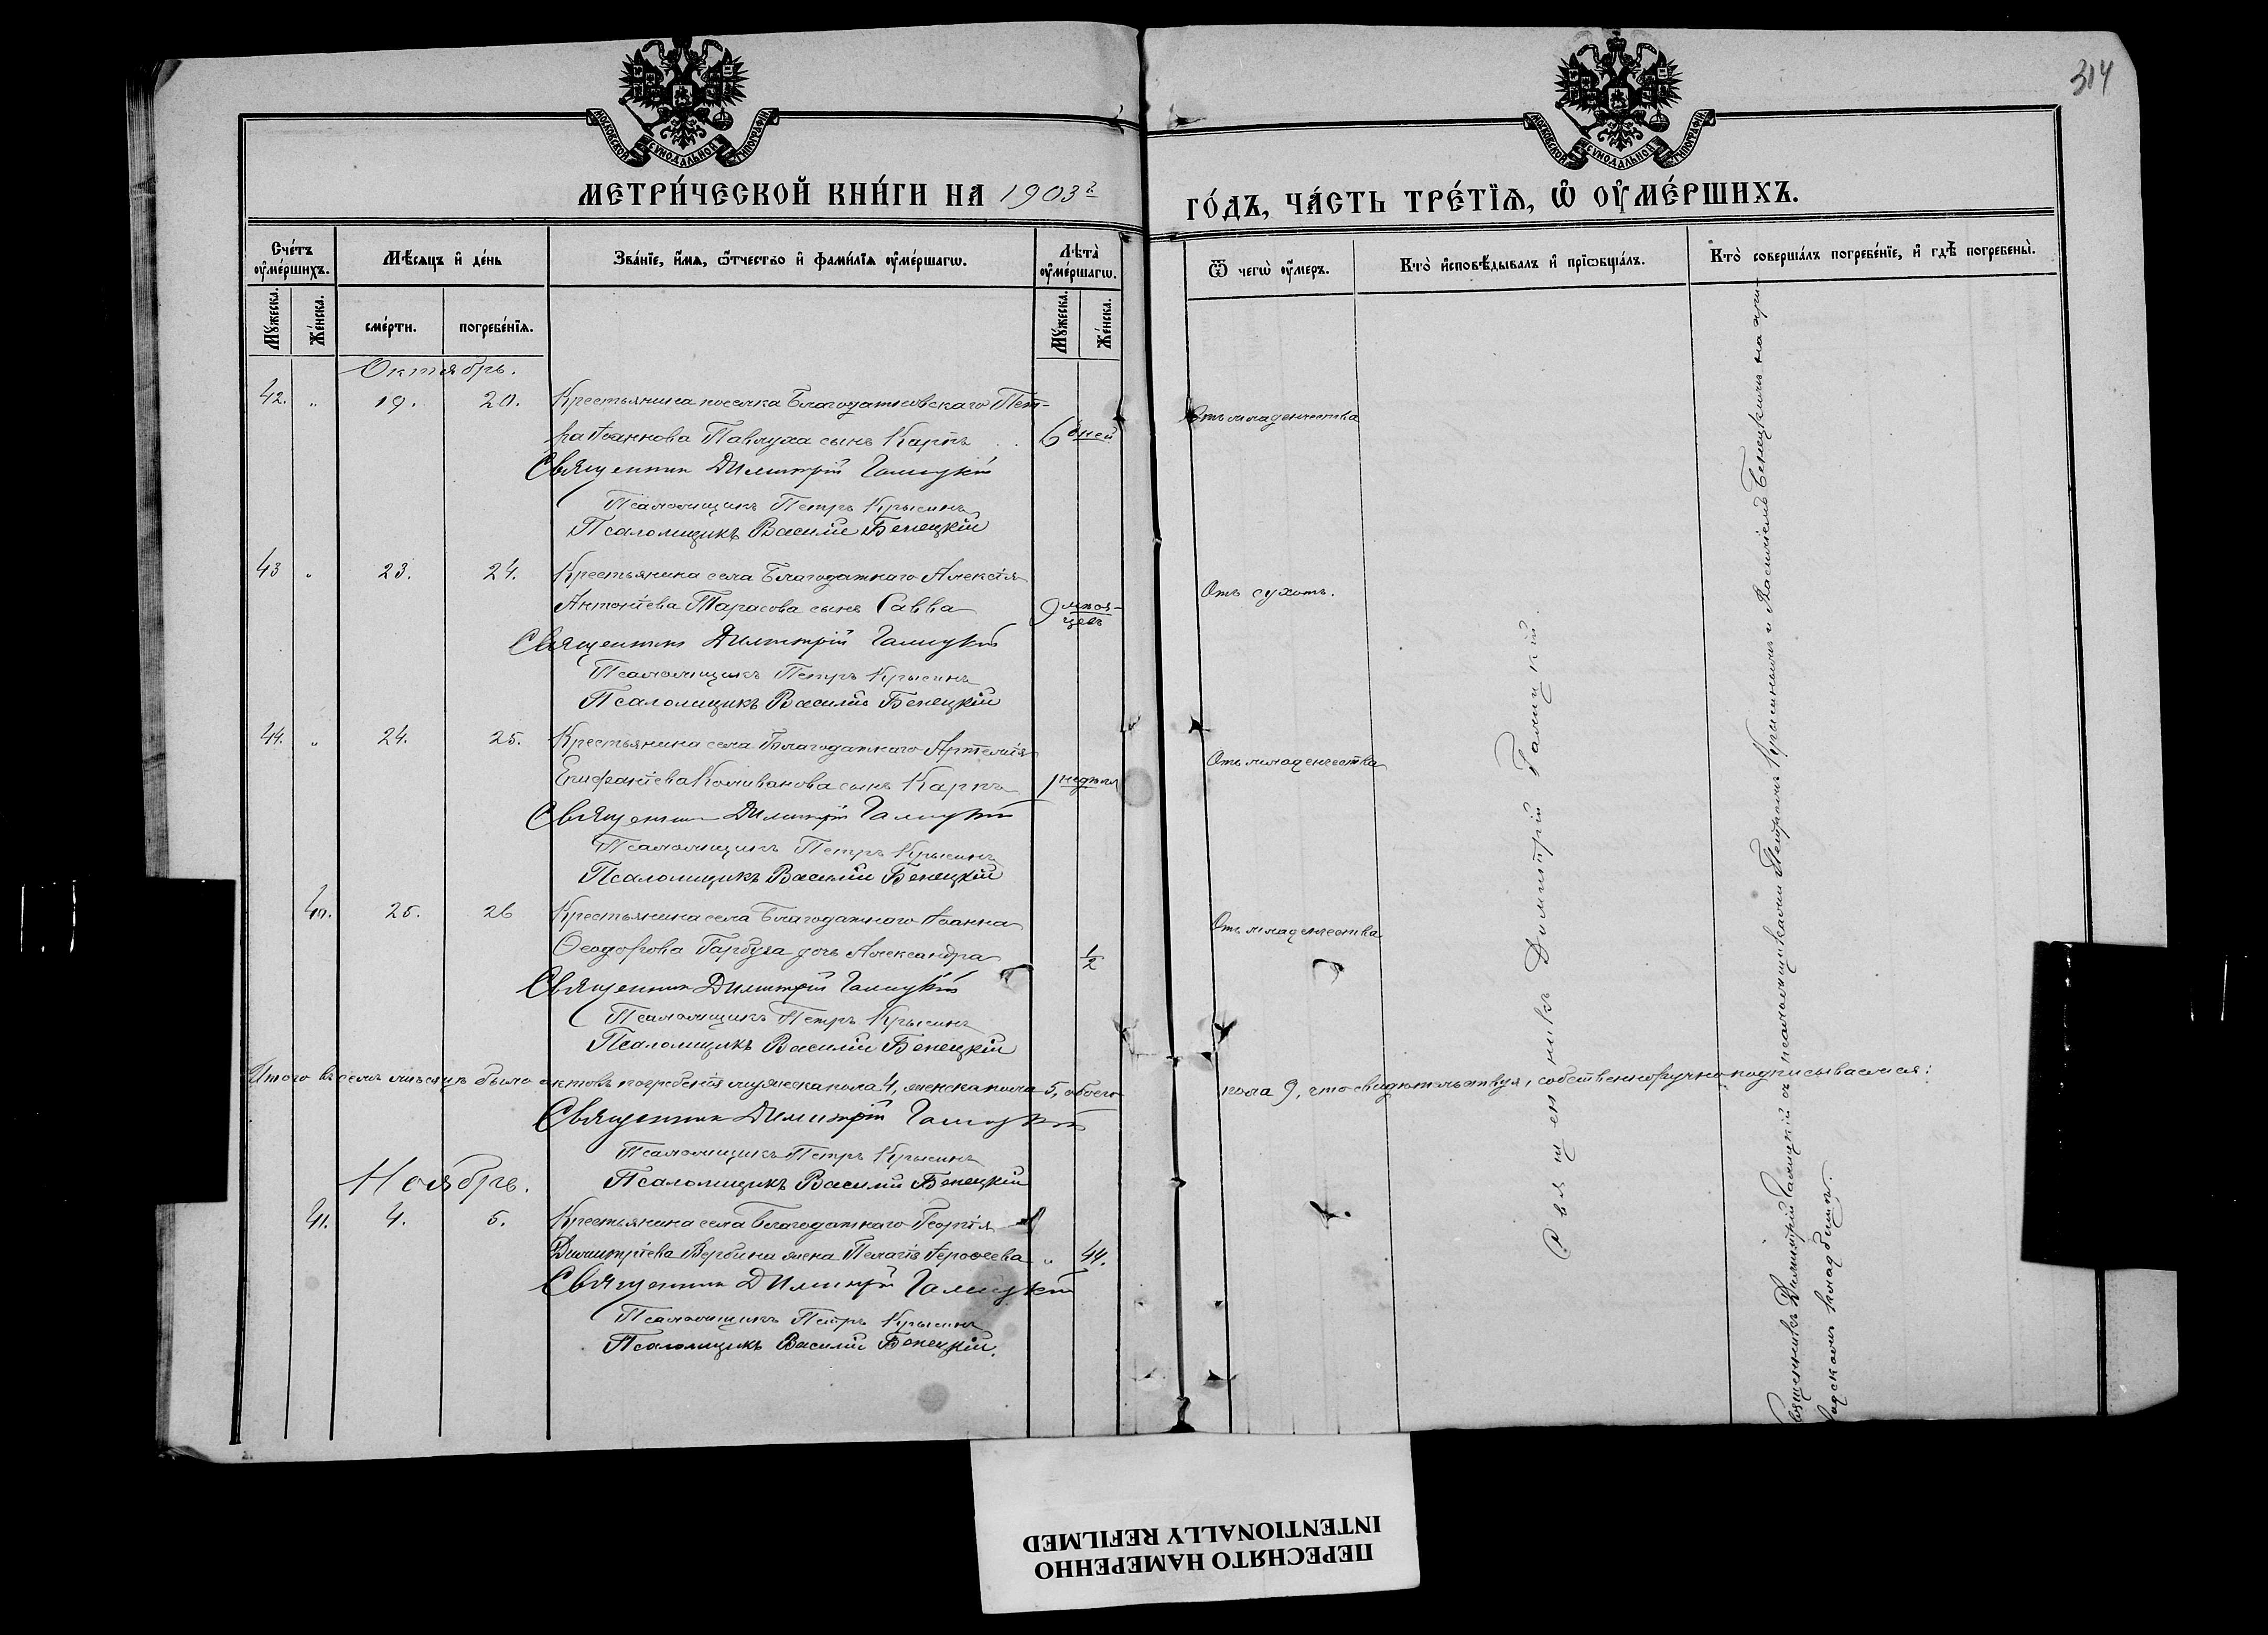 314
МОСКОВСКОЙ СУНОДАЛЬНОЙ ТИПОГРАФІИ
МОСКОВСКОЙ СУНОДАЛЬНОЙ ТИПОГРАФІИ
МЕТРИ́ЧЕСКОЙ КНИ́ГИ НА 1903 г.
ГО́ДЪ, ЧА́СТЬ ТРЕ́ТІѦ, Ѡ҆ ОУ҆МЕ́РШИХЪ.
Сче́тъ оу҆ме́ршихъ.
Мѣ́сяцъ и҆ де́нь
Зва́нїе, и҆́мѧ, ѻ҆́тчество и҆ фами́лїѧ оу҆ме́ршагѡ.
Лѣ̀та оу҆ме́ршагѡ.
Ѿ чегѡ̀ оу҆́меръ.
Кто̀ и҆сповѣ́дывалъ и҆ прїѡбща́лъ.
Кто̀ соверша́лъ погребе́нїе, и҆ гдѣ̀ погребены̀.
Мꙋ́жеска.
Же́нска.
сме́рти.
погребе́нїѧ.
Мꙋ́жеска.
Же́нска.
Октябрь.
42. " 19. 20. Крестьянина поселка Благодатновскаго Пет-
ра Іоаннова Павлуха сынъ Карпъ 6 дней Отъ младенчества
Священникъ Димитрій Галицкій
Псаломщикъ Петръ Крысинъ
Псаломщикъ Василій Бенецкій
43 " 23. 24. Крестьянина села Благодатнаго Алексія
Антоніева Тарасова сынъ Савва 9 мѣся-цевъ Отъ сухотъ.
Священникъ Димитрій Галицкій
Псаломщикъ Петръ Крысинъ
Псаломщикъ Василій Бенецкій
44. " 24. 25. Крестьянина села Благодатнаго Артемія
Епифаніева Коливанова сынъ Карпъ 1 недѣля Отъ младенчества
Священникъ Димитрій Галицкій
Псаломщикъ Петръ Крысинъ
Псаломщикъ Василій Бенецкій
40. 25. 26 Крестьянина села Благодатнаго Іоанна
Ѳеодорова Гарбуза дочь Александра 1/2 Отъ младенчества
Священникъ Димитрій Галицкій
Псаломщикъ Петръ Крысинъ
Псаломщикъ Василій Бенецкій
Итого въ семъ мѣсяцѣ было актовъ погребенія мужеска пола 4, женска пола 5, обоего пола 9, что свидѣтельствуя, собственноручно подписываемся:
Священникъ Димитрій Галицкій
Псаломщикъ Петръ Крысинъ
Псаломщикъ Василій Бенецкій
Ноябрь.
41. 4. 5. Крестьянина села Благодатнаго Георгія
Димитріева Вербина жена Пелагія Іероѳеева " 44.
Священникъ Димитрій Галицкій
Псаломщикъ Петръ Крысинъ
Псаломщикъ Василій Бенецкій.
Священникъ Димитрій Галицкій.
Священникъ Димитрій Галицкій съ псаломщиками Петромъ Крысинымъ и Василіемъ Бенецкимъ на при-
ходскомъ кладбищѣ.
ПЕРЕСНЯТО НАМЕРЕННО
INTENTIONALLY REFILMED